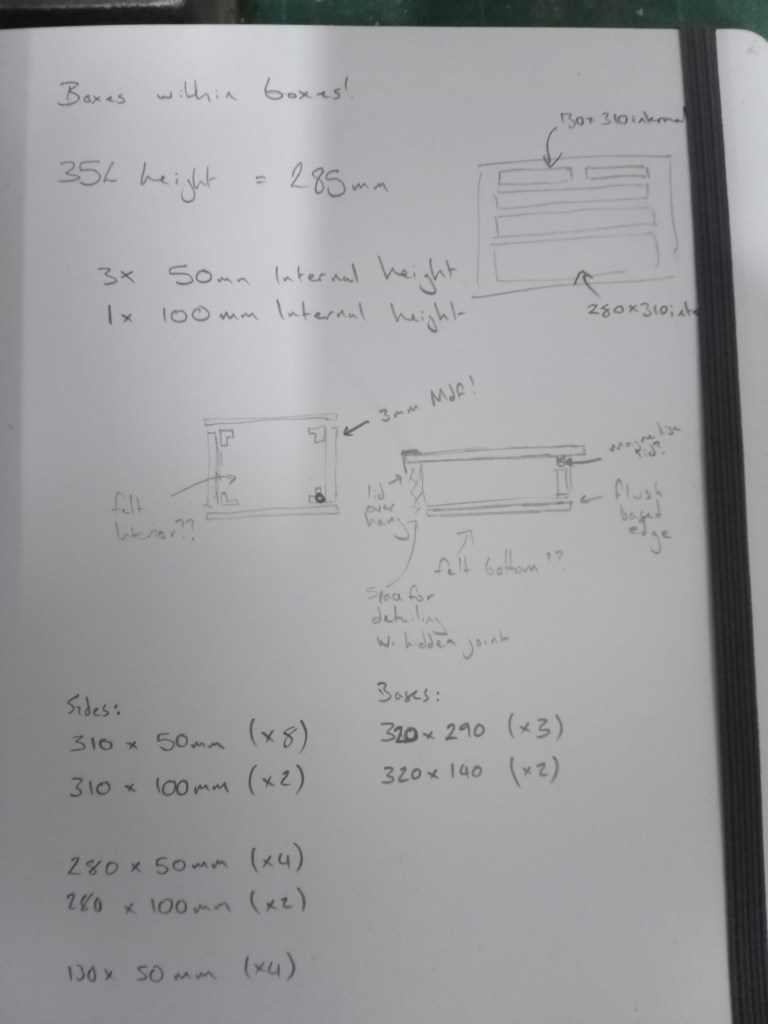 Boxes within boxes!
130 x 310 internal
35L height = 285mm
3x 50mm Internal height
1x 100mm Internal height
280x310 int
3mm Mdf!
felt
Interior??
lid
over
hang
flush
based
edge
felt bottom??
Space for
detailing
w. hidden joint
Sides:
310 x 50mm (x8)
310 x 100mm (x2)
280 x 50mm (x4)
280 x 100mm (x2)
130 x 50mm (x4)
Bases:
320 x 290 (x3)
320 x 140 (x2)